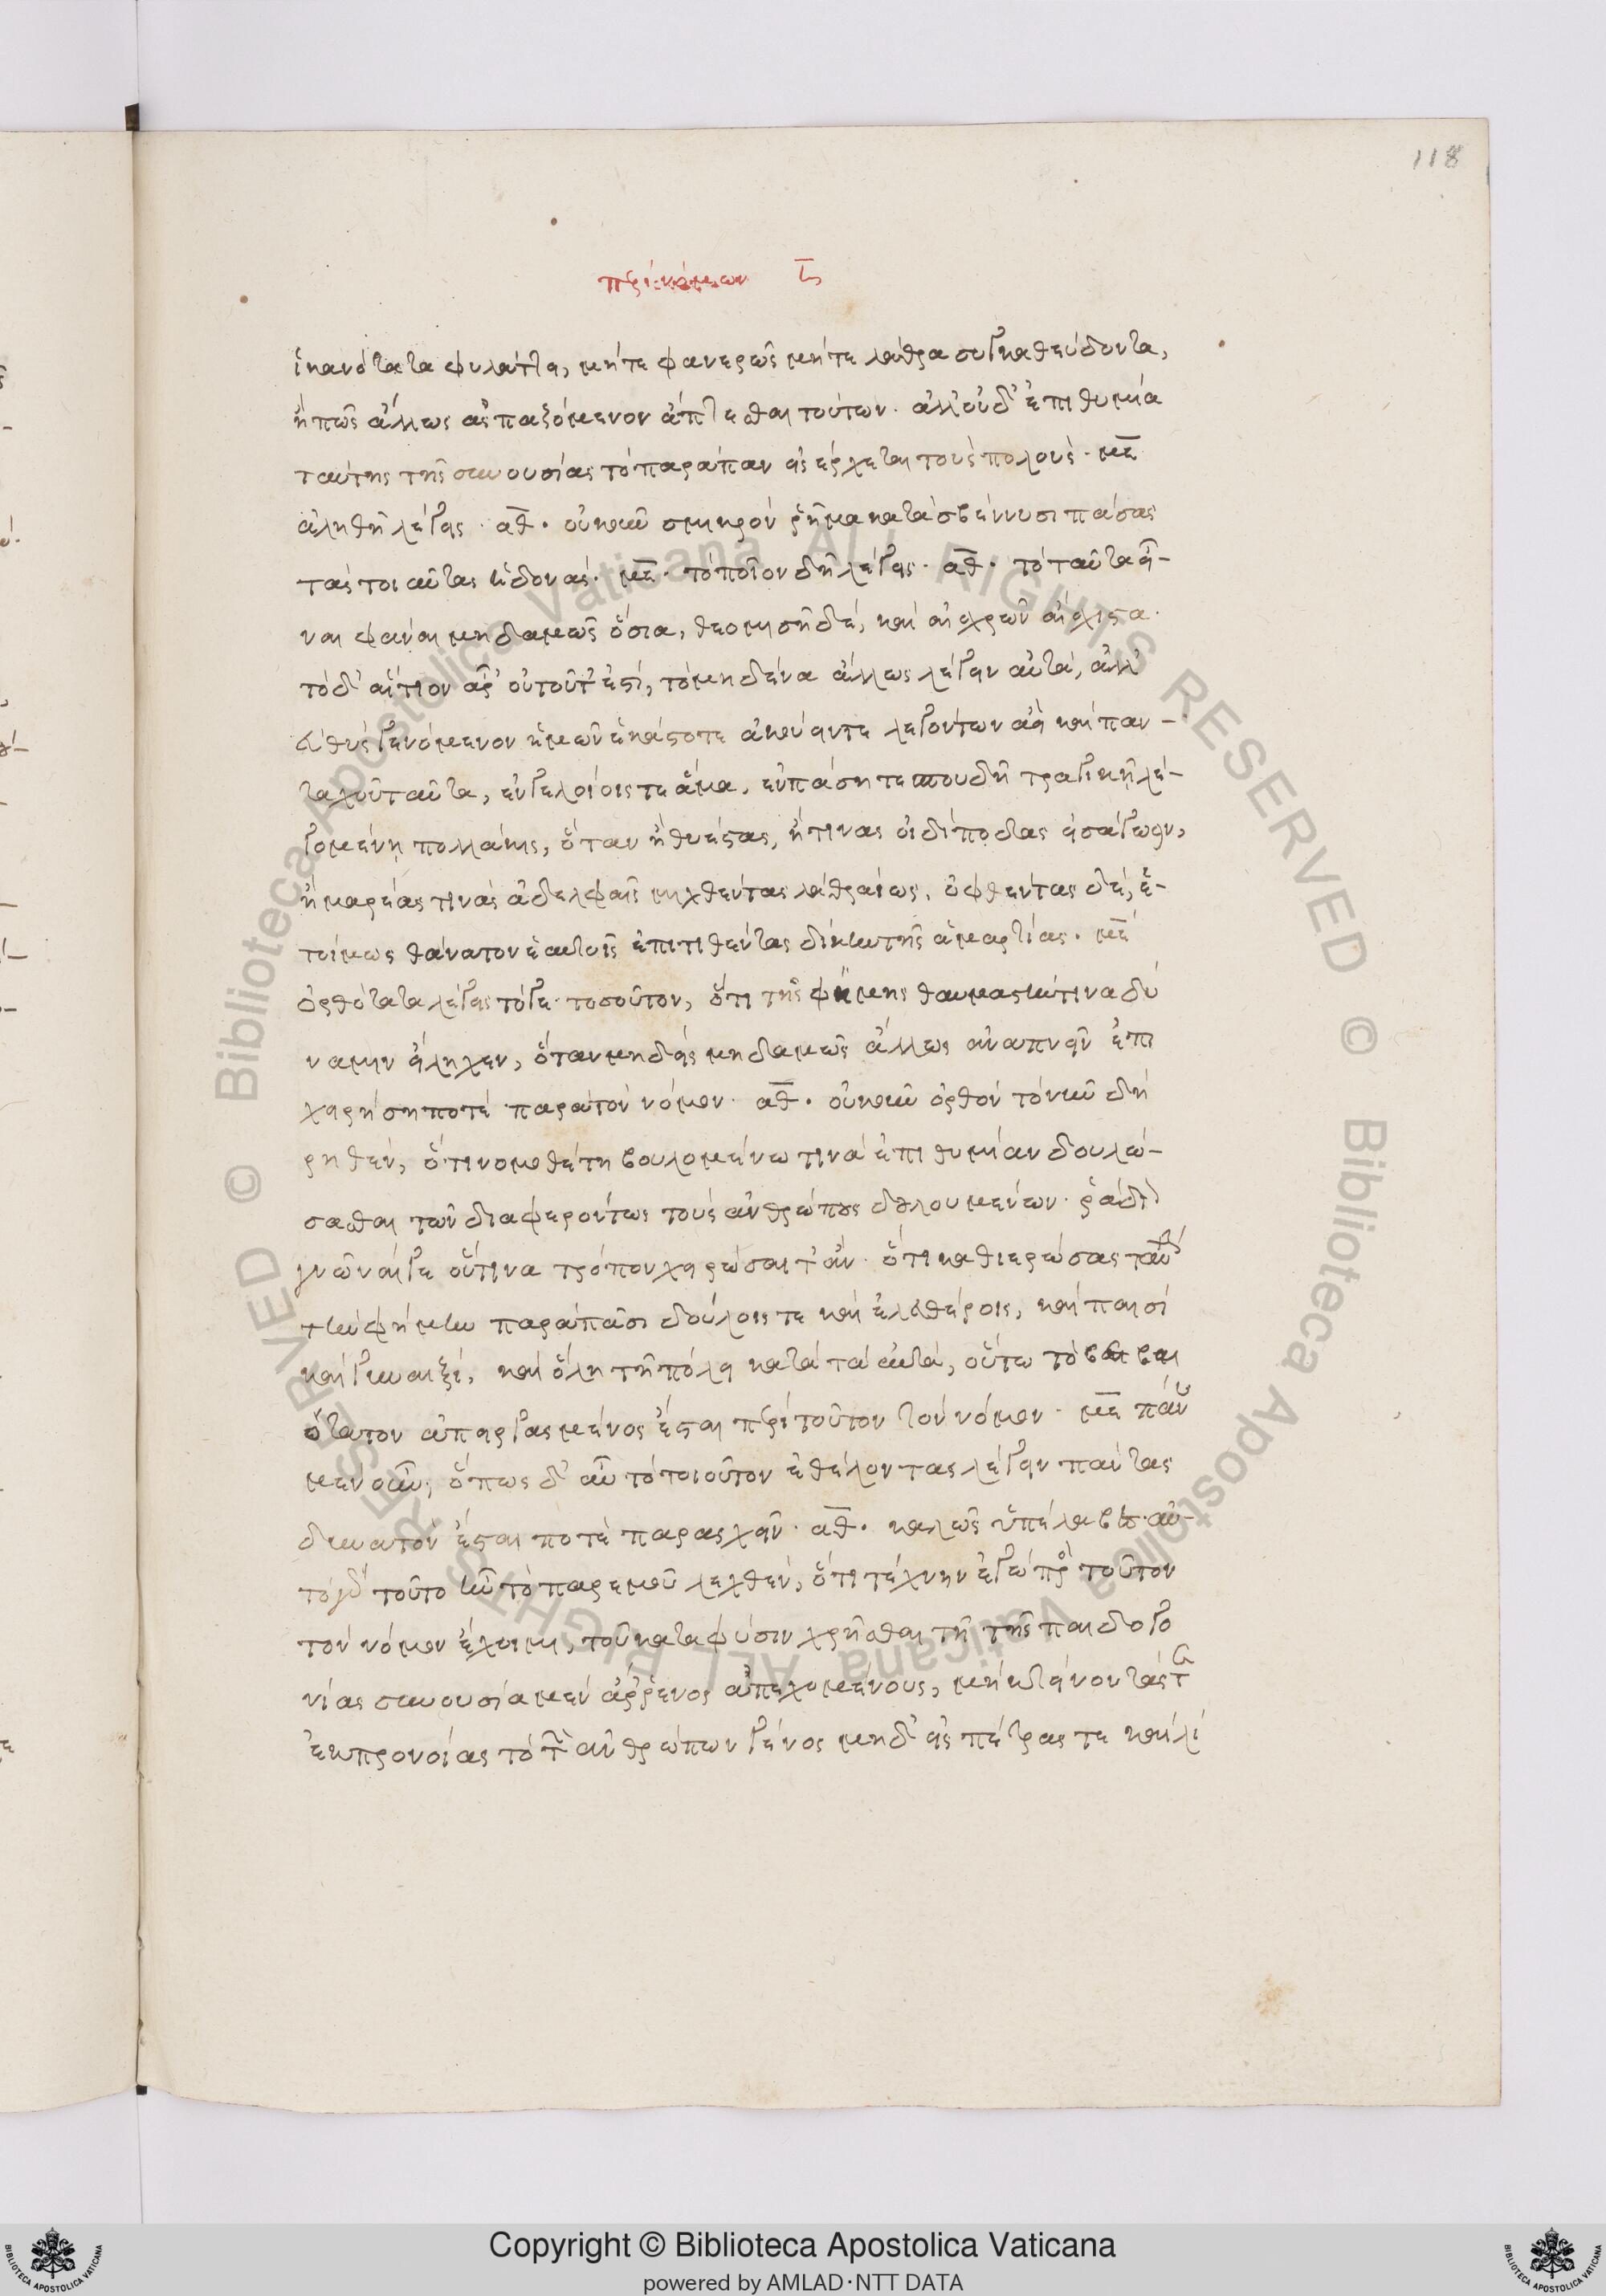 118
περὶ νόμων ζ
ἱκανότατα φυλάττει, μήτε φανερῶς μήτε λάθρα συγκαθεύδοντα,
ἤ πως ἄλλως ἀσπαζόμενον ἅπτεσθαι τούτων. ἀλλ' οὐδ' ἐπιθυμία
ταύτης τῆς συνουσίας τὸ παράπαν εἰσέρχεται τοὺς πολοὺς. με
ἀληθῆ λέγεις. αθ. οὐκοῦν σμικρὸν ῥῆμα κατασβέννυσι πάσας
τὰς τοιαύτας ἡδονάς. με. τὸ ποῖον δὴ λέγεις. αθ. τὸ ταῦτα εἶ-
ναι φάναι μηδαμῶς ὅσια, θεομισῆ δέ, καὶ αἰσχρῶν αἴσχιστα.
τὸ δ' αἴτιον ἆρ' οὐ τοῦτ' ἐστί, τὸ μηδένα ἄλλως λέγειν αὐτά, ἀλλ'
εὐθὺς γενόμενον ἡμῶν ἑκάστοτε ἀκούειν τε λεγόντων ἀεὶ καὶ παν-
ταχοῦ ταῦτα, ἐν γελοίοις τε ἅμα, ἐν πάσῃ τε σπουδῇ τραγικῇ λε-
γομένῃ πολλάκις, ὅταν ἢ θυέστας, ἤ τινας οἰδίποδας εἰσάγωσιν,
ἢ μαρέας τινὰς ἀδελφαῖς μιχθέντας λαθραίως, ὀφθέντας δὲ, ἑ-
τοίμως θάνατον ἑαυτοῖς ἐπιτιθέντας δίκην τῆς ἁμαρτίας. με
ὀρθότατα λέγεις τό γε τοσοῦτον, ὅτι τῆς φήμης θαυμαστήν τινα δύ
ναμιν εἴληχεν, ὅταν μηδεὶς μηδαμῶς ἄλλως ἀναπνεῖν ἐπι
χειρήσῃ ποτὲ παρὰ τὸν νόμον. αθ. οὐκοῦν ὀρθὸν τὸ νῦν δὴ
ρηθέν, ὅτι νομοθέτῃ βουλομένῳ τινὰ ἐπιθυμίαν δουλώ-
σασθαι τῶν διαφερόντως τοὺς ἀνθρώπους δουλουμένων. ῥάδι
γνῶναί γε ὅντινα τρόπον χειρώσαιτ' ἄν. ὅτι καθιερώσας ταύτ
τὴν φήμην παρὰ πᾶσι δούλοις τε καὶ ἐλευθέροις, καὶ παισὶ
καὶ γυναιξὶ, καὶ ὅλῃ τῇ πόλει κατὰ τὰ αὐτά, οὕτω τὸ βεβαι
ότατον ἀπειργασμένος ἔσται περὶ τοῦτον τὸν νόμον. με πάνυ
μὲν οὖν, ὅπως δ' αὖ τὸ τοιοῦτον ἐθέλοντας λέγειν πάντας
δυνατὸν ἔσται ποτὲ παρασχεῖν. αθ. καλῶς ὑπέλαβες. αὐ-
τὸ γὰρ τοῦτο ἦν τὸ παρ' ἐμοῦ λεχθέν, ὅτι τέχνην ἐγὼ πρὸς τοῦτον
τὸν νόμον ἔχοιμι, τοῦ κατὰ φύσιν χρῆσθαι τῇ τῆς παιδογο
νίας συνουσία μὲν ἄρρενος ἀπεχομένους, μὴ κτείνοντάς τε
ἐκ προνοίας τὸ τῶν ἀνθρώπων γένος μηδ' εἰς πέτρας τε καὶ λί
Copyright © Biblioteca Apostolica Vaticana
powered by AMLAD·NTT DATA
© Biblioteca Apostolica Vaticana ALL RIGHTS RESERVED © Biblioteca Apostolica Vaticana ALL RIGHTS RESERVED
BIBLIOTECA APOSTOLICA VATICANA
BIBLIOTECA APOSTOLICA VATICANA